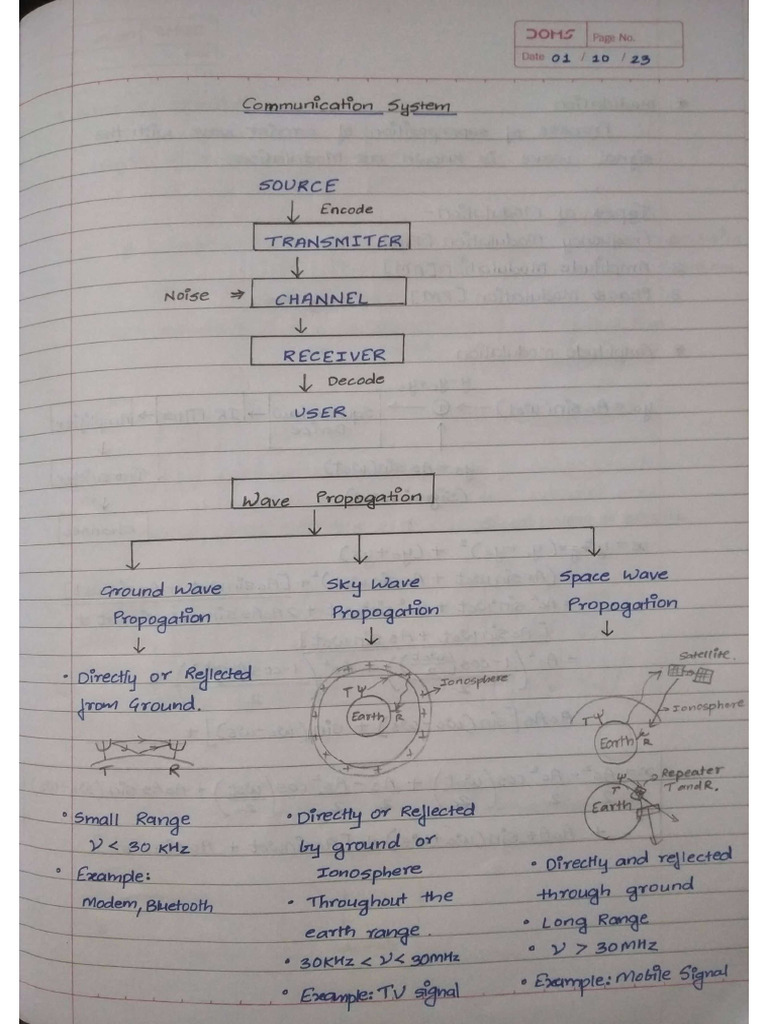 DOMS
Page No.
Date 01 / 10 / 23
Communication System
SOURCE
Encode
TRANSMITER
Noise ⇒ CHANNEL
RECEIVER
Decode
USER
Wave Propogation
Ground Wave
Propogation
• Directly or Reflected
from Ground.
T R
• Small Range
ν < 30 KHz
• Example:
Modem, Bluetooth
Sky Wave
Propogation
Ionosphere
T
Earth
R
• Directly or Reflected
by ground or
Ionosphere
• Throughout the
earth range.
• 30KHz < ν < 30MHz
• Example: TV signal
Space Wave
Propogation
Satellite.
Ionosphere
T
Earth
R
Repeater
T and R.
T
Earth
• Directly and reflected
through ground
• Long Range
• ν > 30MHz
• Example: Mobile Signal